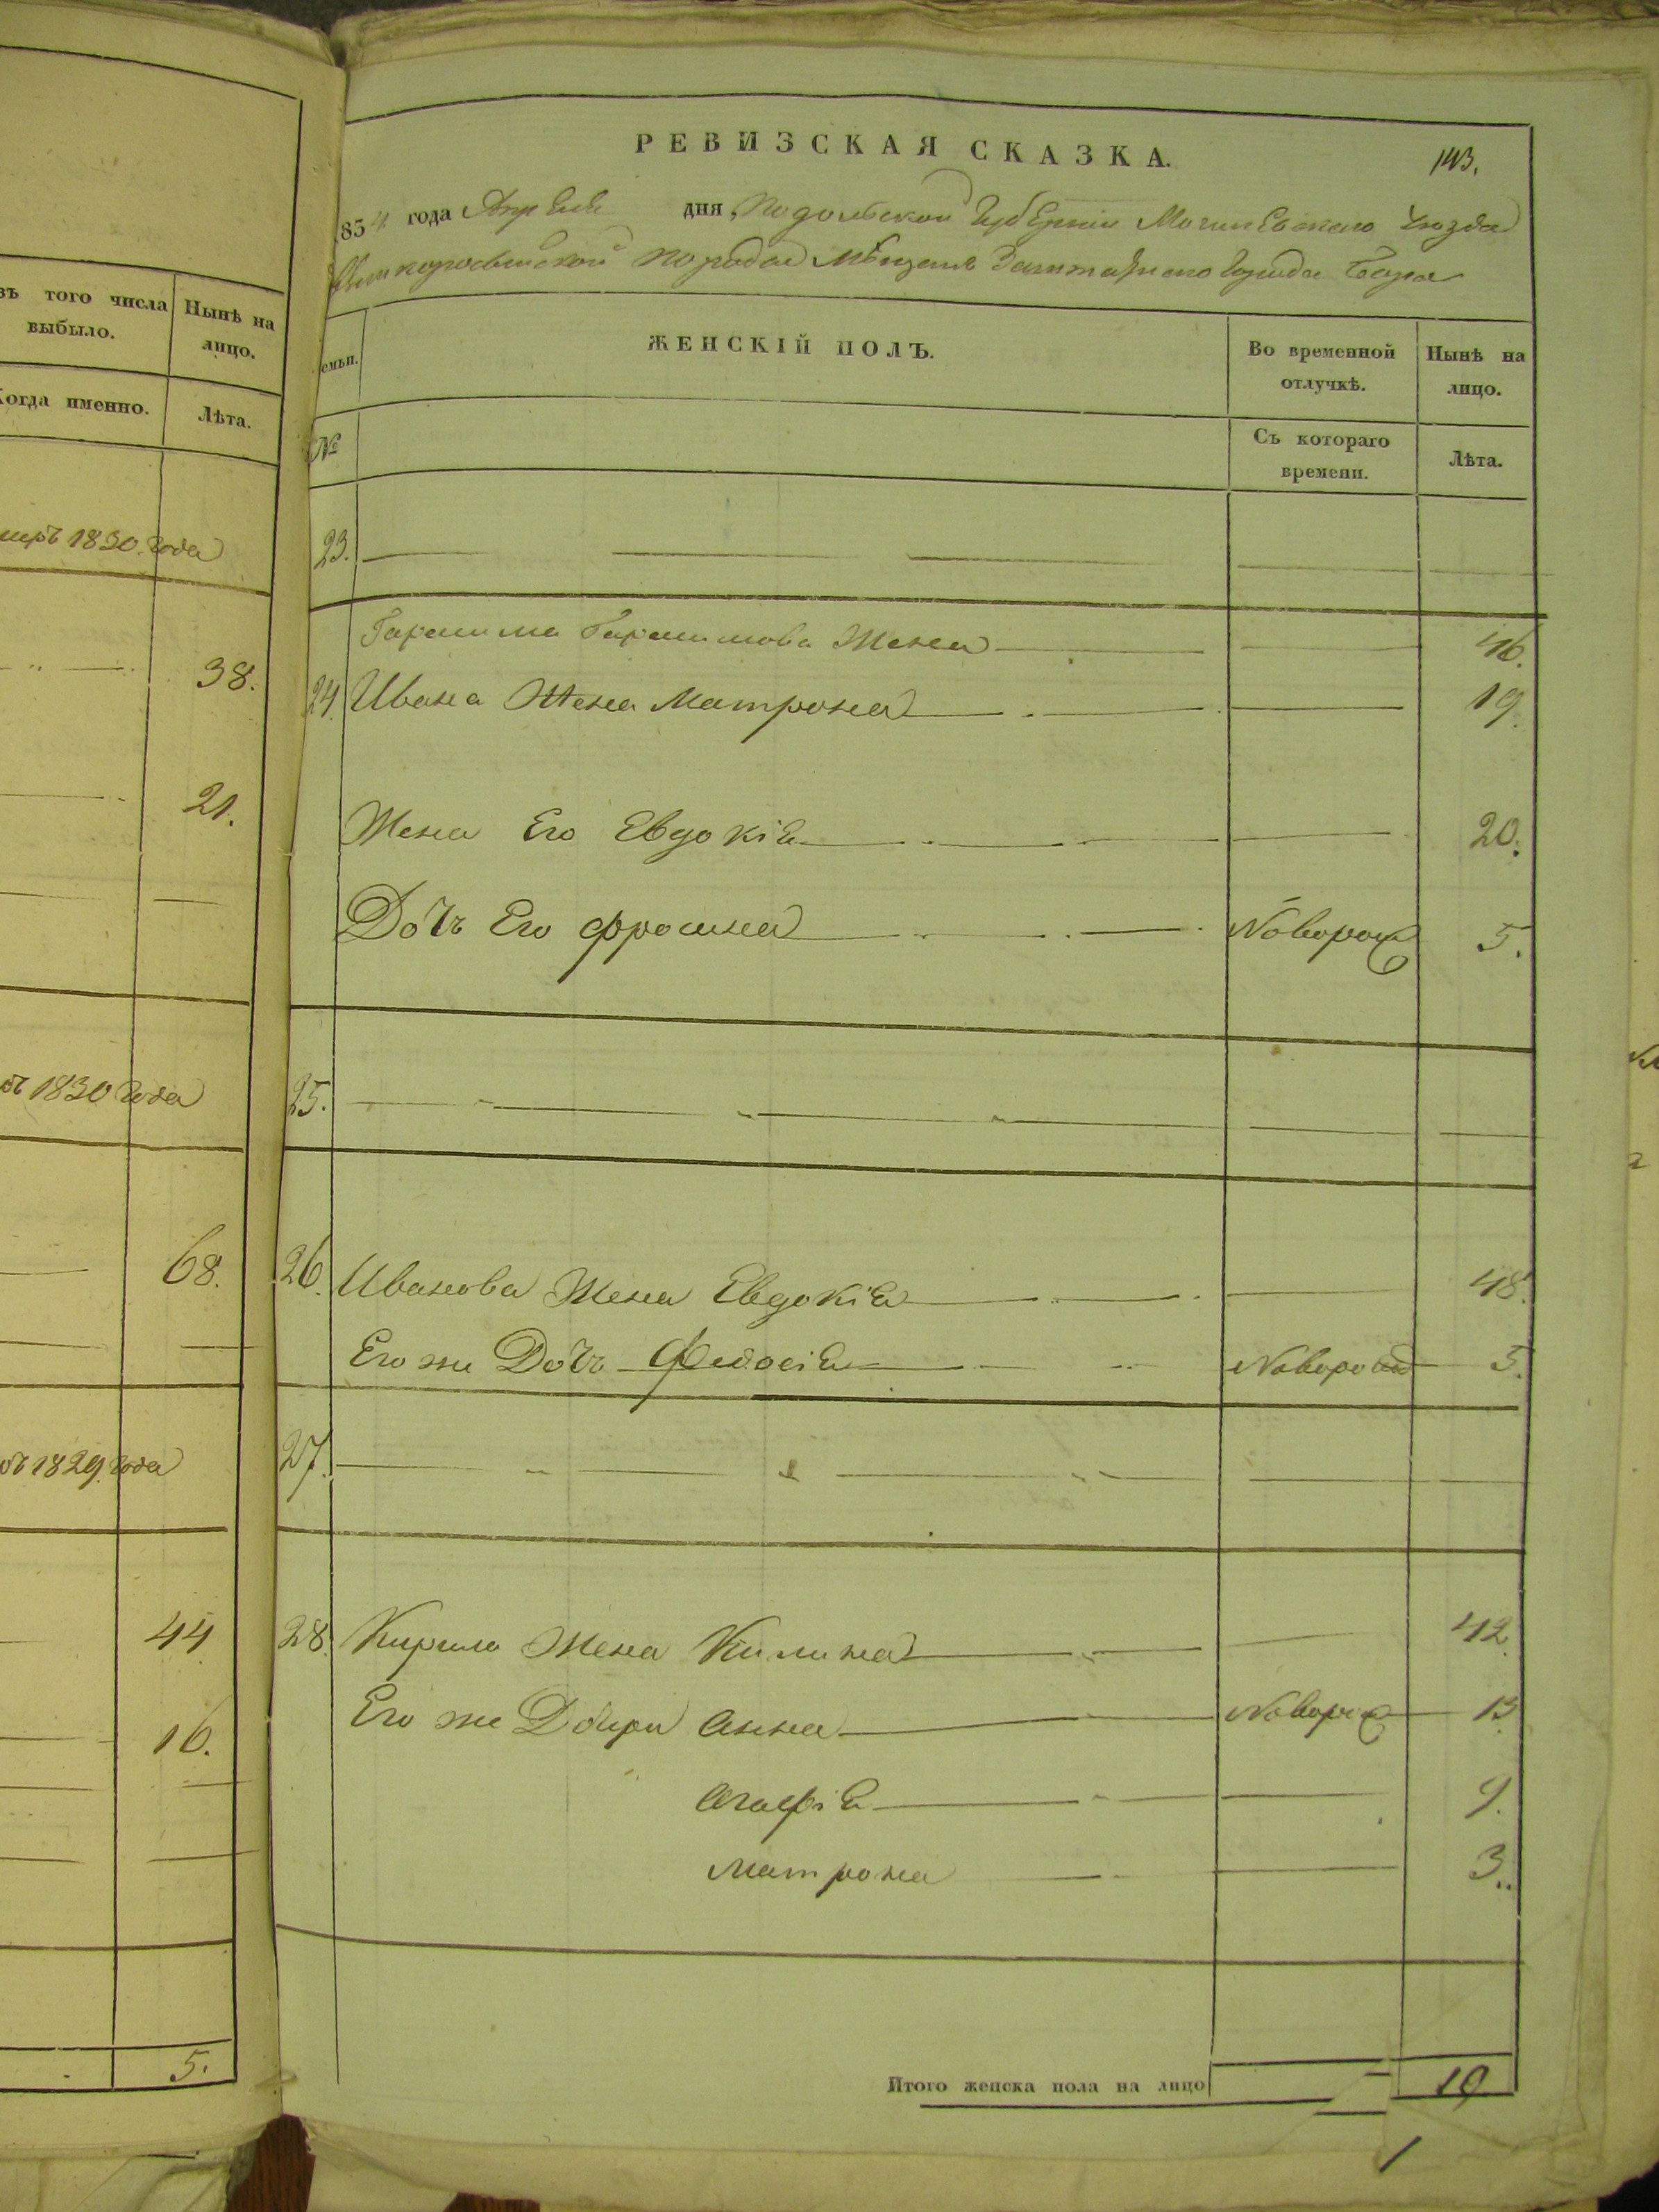 РЕВИЗСКАЯ СКАЗКА.
143.
1854 года Апреля дня Подольской Губерніи Могилевскаго уезда
породы мещанъ Заштатнаго Города Бара
зъ того числа выбыло.
Нынѣ на лицо.
Когда именно.
Лѣта.
1830. года
38.
21.
1830 года
68.
1829 года
44
16.
5.
емьи.
ЖЕНСКІЙ ПОЛЪ.
Во временной отлучкѣ.
Нынѣ на лицо.
№
Съ котораго времени.
Лѣта.
23.
Жена 46.
24. Ивана Жена Матрона 19.
Жена Его Евдокія 20.
Дочь Его Фросина Новорож 5.
25.
26. Иванова Жена Евдокія 48.
Его же Дочь Федосія Новорож 5.
27.
28. Кирила Жена Килина 42
Его же Дочери Анна Новорож 13
Агафія 9.
Матрона 3.
Итого женска пола на лицо 10